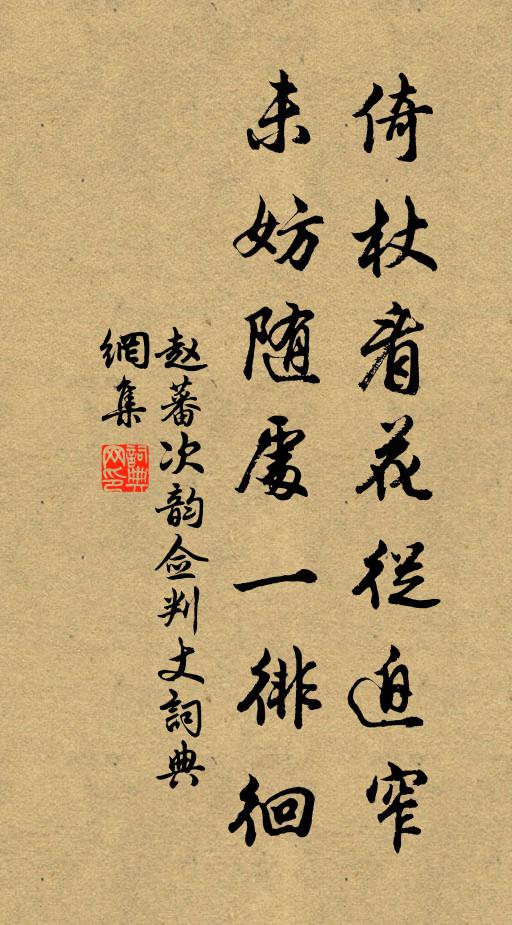 倚杖看花從迫窄
未妨随處一徘徊
赵蕃次韵佥判丈詞典
網集
詞典
网印